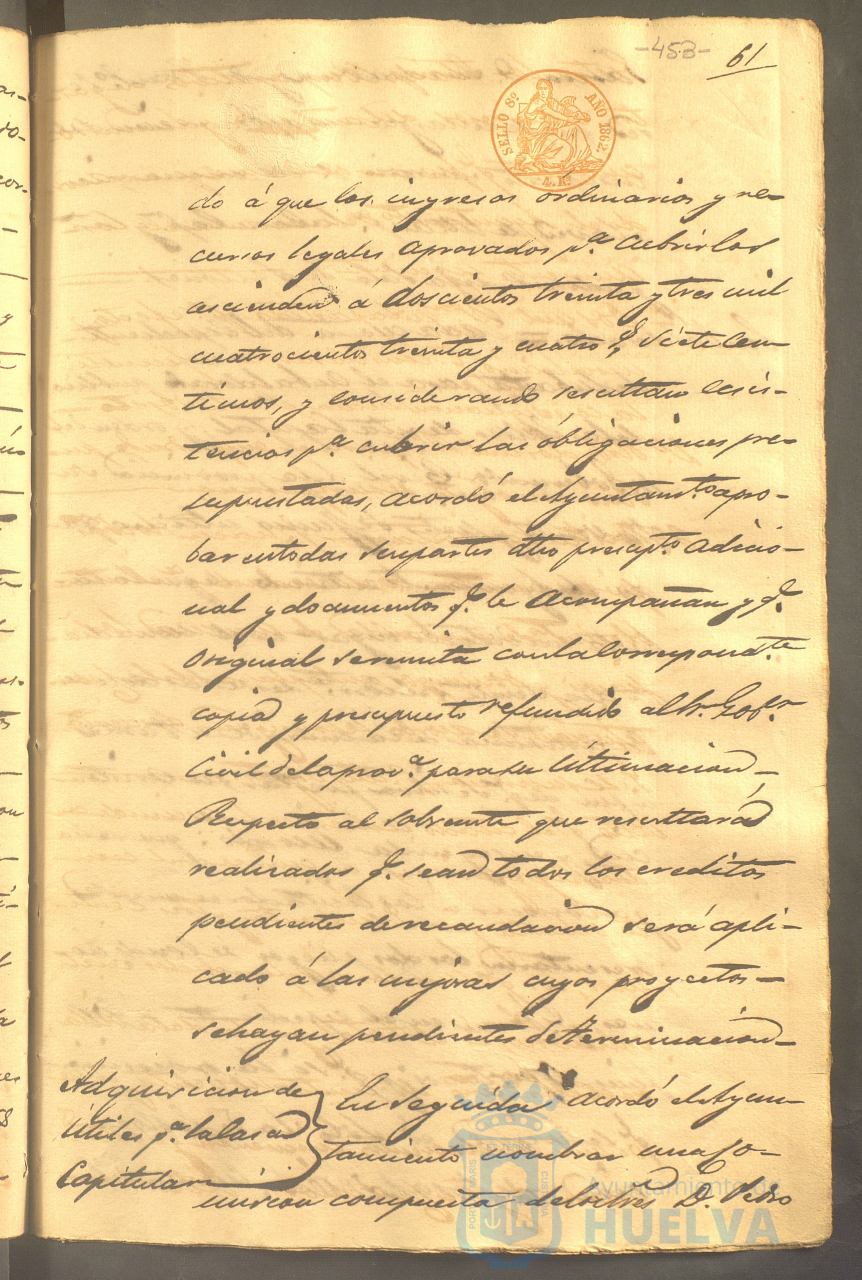 -453-
61
SELLO 8º AÑO 1862
4 Rs
do á que los ingresos órdinarios y re-
cursos legales aprovados pª cubrirlos
ascienden á doscientos treinta y tres mil
cuatrocientos treinta y cuatro rs siete cen-
timos, y considerando resultan ecsis-
tencias pª cubrir las óbligaciones pre-
supuestadas, acordó el Ayuntamto apro-
bar en todas sus partes dho presupto adicio-
nal y documentos q. le acompañan y q.
original se remita con la correspondte
copia y presupuesto refundido al Sr. Gobr
Civil de la provª para su ultimacion_
Respecto al sobrante que resultará
realizados q. sean todos los creditos
pendientes de recaudacion será apli-
cado á las mejoras cuyos proyectos
se hayan pendientes de terminacion_
Adquisicion de
útiles pª la casa
Capitular
En seguida acordó el Ayun-
tamiento nombrar una co-
mision compuesta de los Sres D. Pedro
Ayuntamiento de
HUELVA